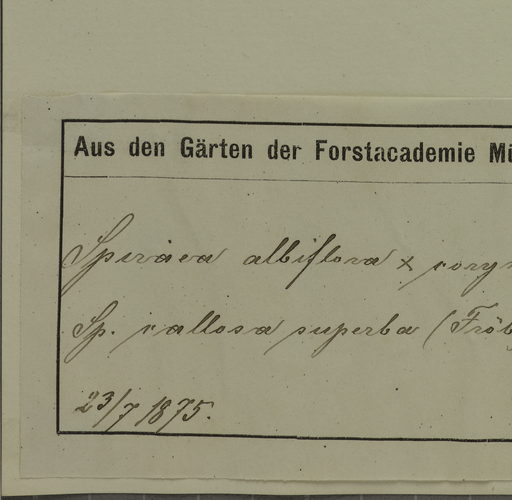 Aus den Gärten der Forstacademie Mü
Spiraea albiflora × corym
Sp. callosa superba (Fröb
23/7 1875.